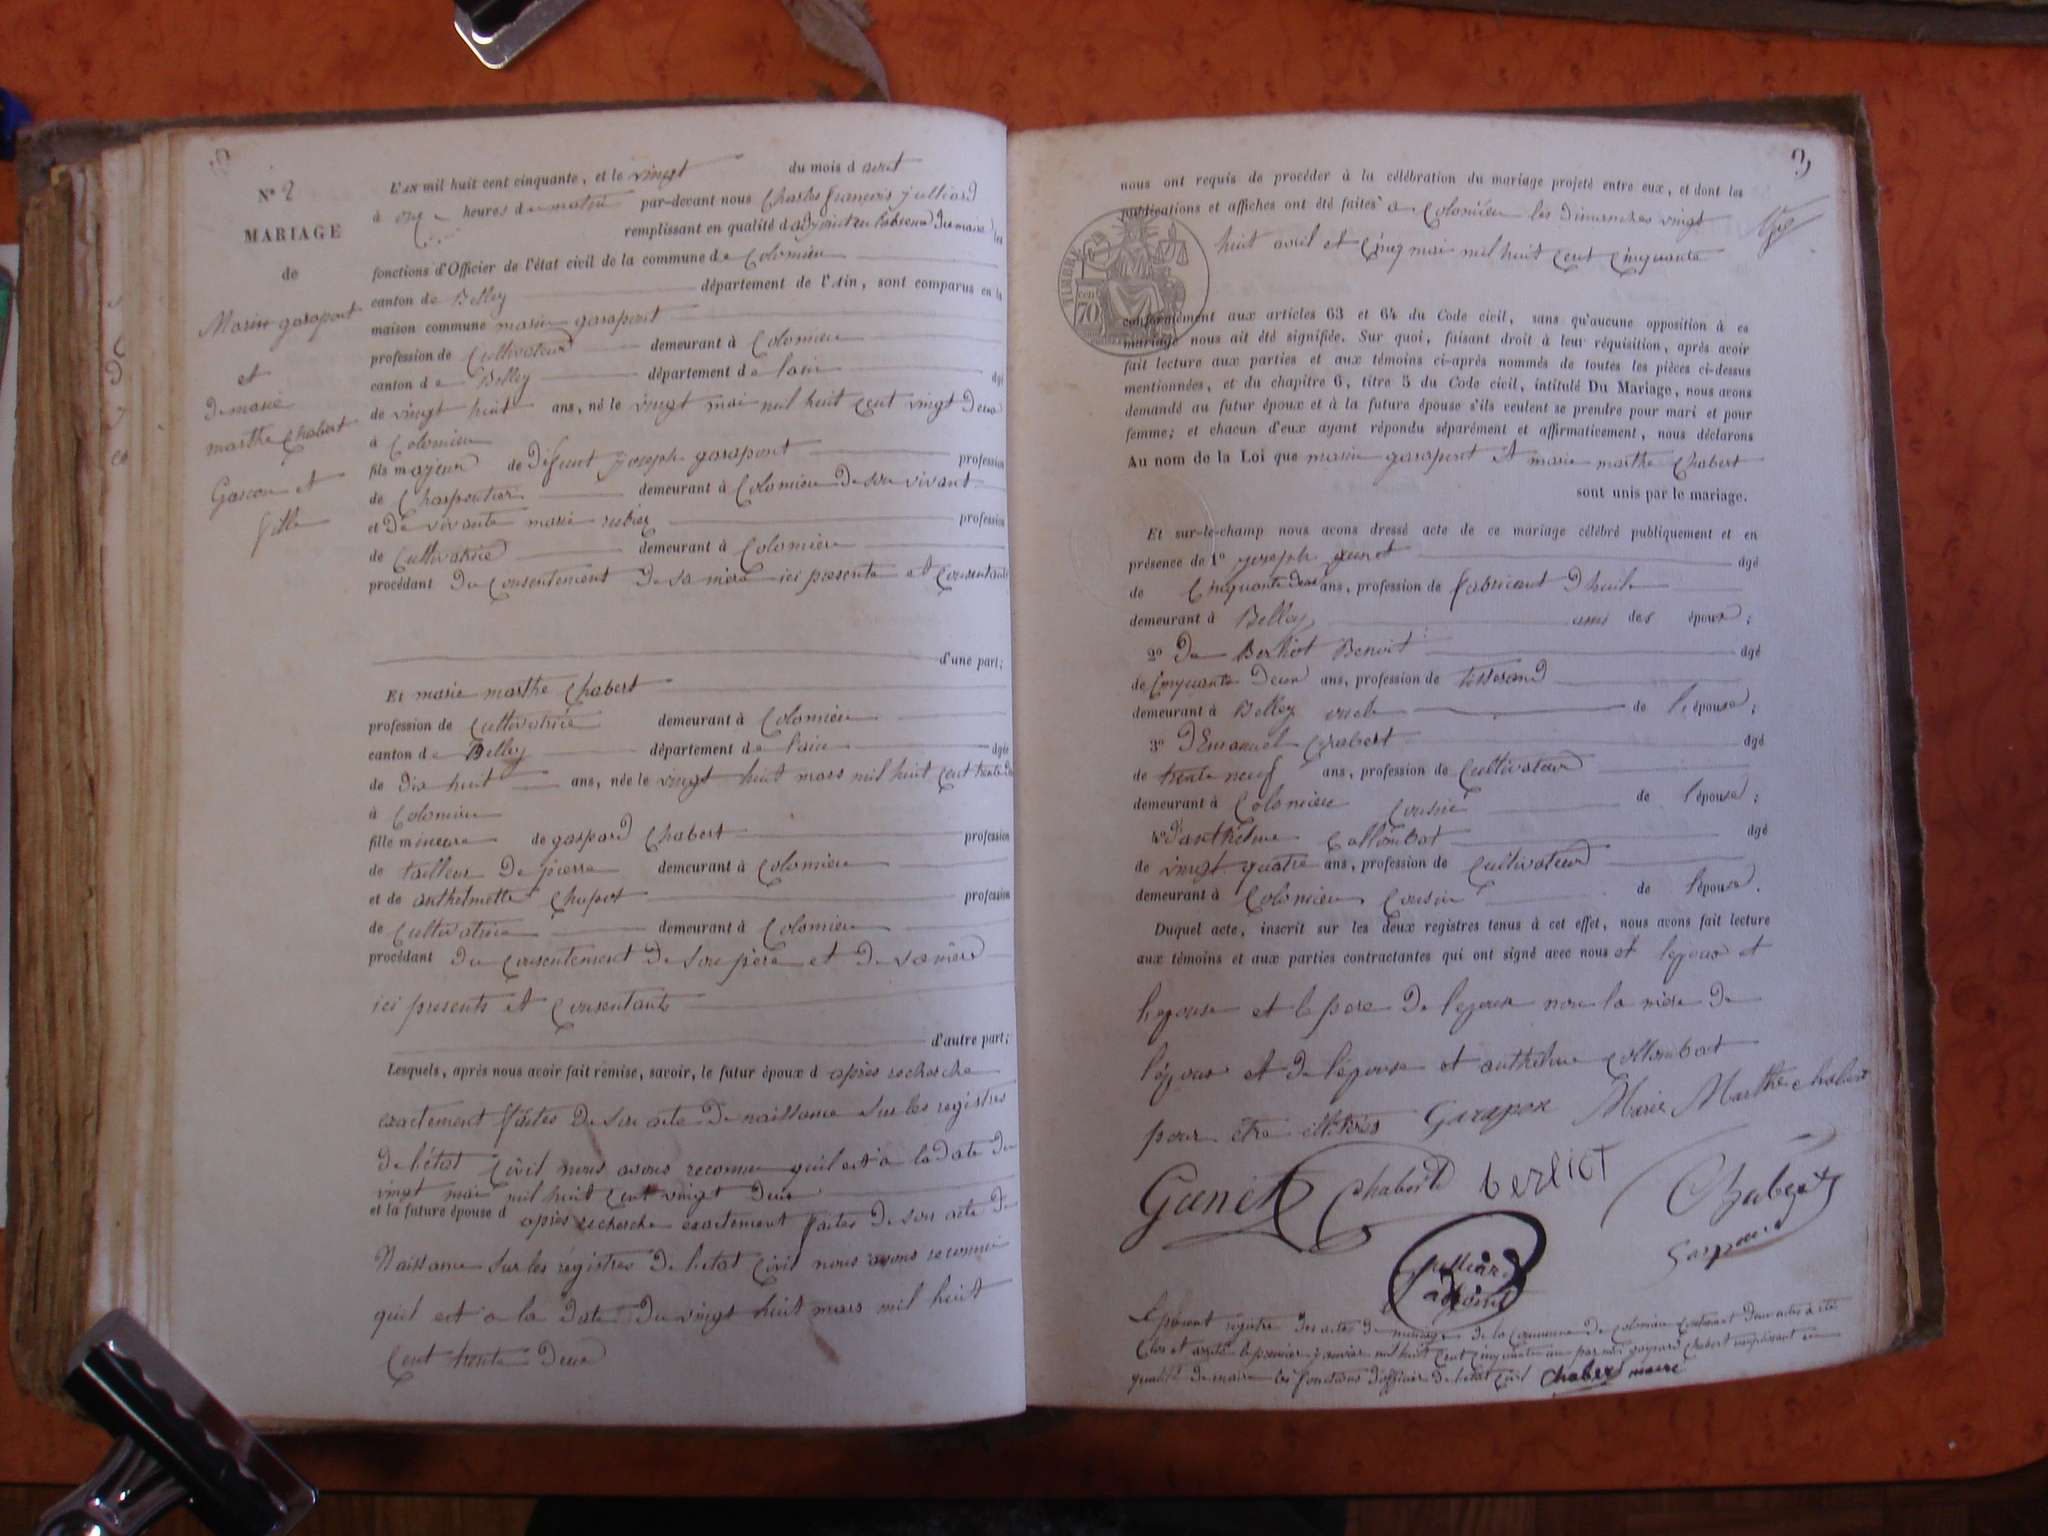 N° 2
MARIAGE
de
Marin garapont
et
de marie
marthe Chabert
Garcon et
fille
L'AN mil huit cent cinquante, et le vingt du mois d aout
à onze heures du matin par-devant nous Charles francois julliard
remplissant en qualité d adjoint en l'absence du maire les
fonctions d'Officier de l'état civil de la commune de Colomieu
canton de Belley département de l'Ain, sont comparus en la
maison commune marin garapont
profession de Cultivateur demeurant à Colomieu
canton de Belley département de lain âgé
de vingt huit ans, né le vingt mai mil huit cent vingt deux
à Colomieu
fils majeur de Défunt joseph garapont profession
de Charpentier demeurant à Colomieu de son vivant
et de vivante marie profession
de Cultivatrice demeurant à Colomieu
procédant du consentement de sa mère ici presente et consentante
d'une part;
Et marie marthe Chabert
profession de Cultivatrice demeurant à Colomieu
canton de Belley département de lain âgée
de dix huit ans, née le vingt huit mars mil huit cent trente deux
à Colomieu
fille mineure de gaspard Chabert profession
de tailleur de pierre demeurant à Colomieu
et de anthelmette profession
de Cultivatrice demeurant à Colomieu
procédant du consentement de son père et de sa mère
ici presents et consentants
d'autre part;
Lesquels, après nous avoir fait remise, savoir, le futur époux d après recherche
exactement faites de son acte de naissance sur les registres
de l'état Civil nous avons reconnu quil est a la date du
vingt mai mil huit cent vingt deux
et la future épouse d après recherche exactement faites de son acte de
Naissance sur les régistres de letat Civil nous avons reconnu
quil est a la date du vingt huit mars mil huit
cent trente deux
3
nous ont requis de procéder à la célébration du mariage projeté entre eux, et dont les
publications et affiches ont été faites a Colomieu les dimanches vingt
huit avril et cinq mai mil huit cent cinquante
TIMBRE
70 cent
conformément aux articles 63 et 64 du Code civil, sans qu'aucune opposition à ce
mariage nous ait été signifiée. Sur quoi, faisant droit à leur réquisition, après avoir
fait lecture aux parties et aux témoins ci-après nommés de toutes les pièces ci-dessus
mentionnées, et du chapitre 6, titre 5 du Code civil, intitulé Du Mariage, nous avons
demandé au futur époux et à la future épouse s'ils veulent se prendre pour mari et pour
femme; et chacun d'eux ayant répondu séparément et affirmativement, nous déclarons
Au nom de la Loi que marin garapont et marie marthe Chabert
sont unis par le mariage.
Et sur-le-champ nous avons dressé acte de ce mariage célébré publiquement et en
présence de 1° joseph âgé
de Cinquante deux ans, profession de fabricant d'huile
demeurant à Belley ami des époux;
2° de Berliot Benoit âgé
de Cinquante deux ans, profession de tisserand
demeurant à Belley oncle de l'épouse;
3° d'Emanuel Chabert âgé
de trente neuf ans, profession de Cultivateur
demeurant à Colomieu Cousin de l'épouse;
4° d'anthelme Collombat âgé
de vingt quatre ans, profession de Cultivateur
demeurant à Colomieu Cousin de l'époux.
Duquel acte, inscrit sur les deux registres tenus à cet effet, nous avons fait lecture
aux témoins et aux parties contractantes qui ont signé avec nous et lepoux et
lepouse et le père de lepouse non la mère de
lépoux et de lépouse et anthelme Collombat
pour être illétrés Garapon Marie Marthe chabert
Ganet Chabert berliot Chabert
gaspard
Julliard
adjoint
Le présent registre des actes de mariage de la Commune de Colomieu contenant deux actes a été
Clos et arrêté le premier janvier mil huit cent cinquante un par moi gaspard Chabert remplissant en
qualité de maire les fonctions dofficier de létat civil Chabert maire